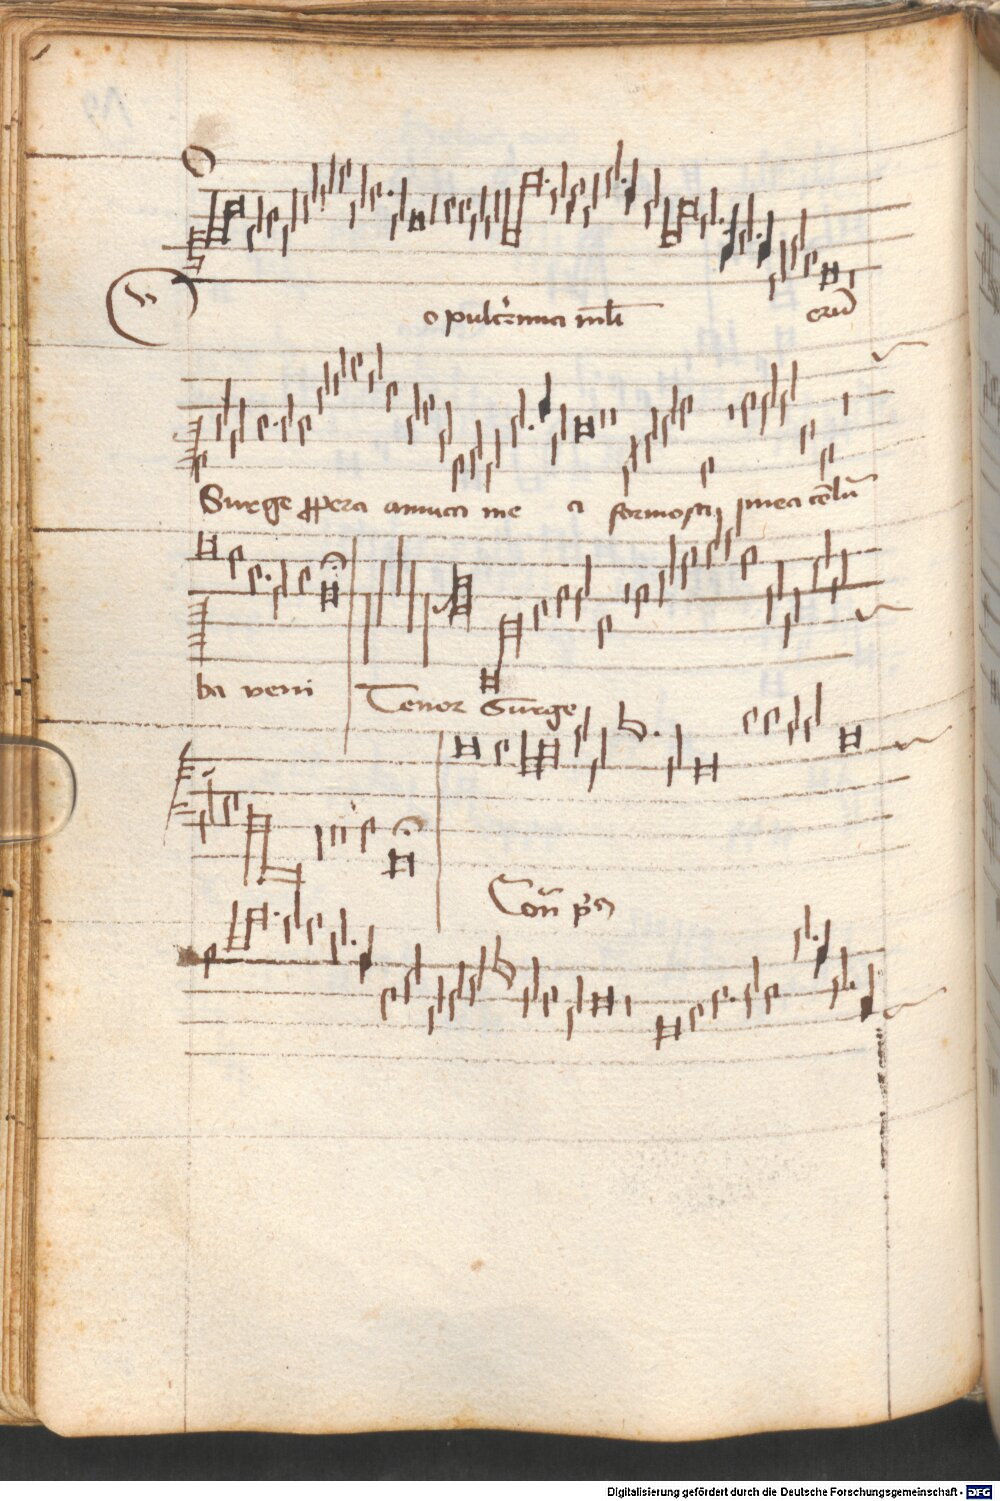 O pulcerrima mulierum
Surge propera amica mea formosa mea colum
ba veni
Tenor Surge
Digitalisierung gefördert durch die Deutsche Forschungsgemeinschaft - DFG